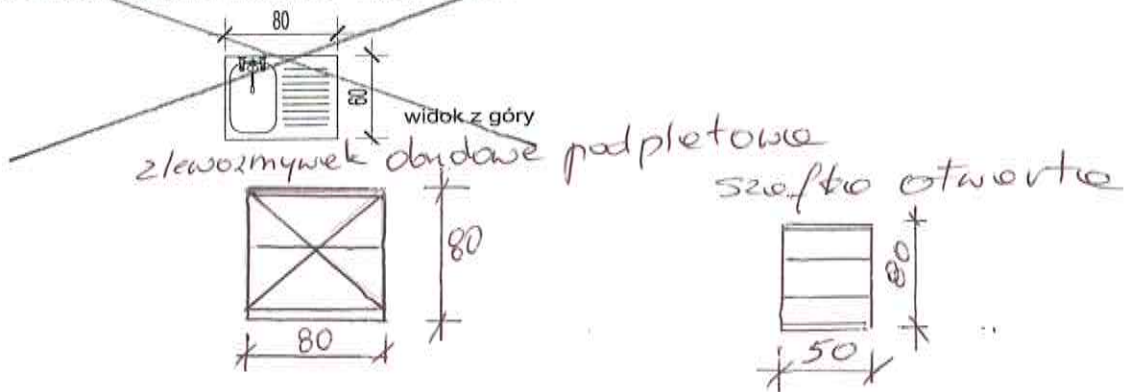 80
60
widok z góry
zlewozmywek obudowe podpletowa
szafka otwarta
80
80
80
50